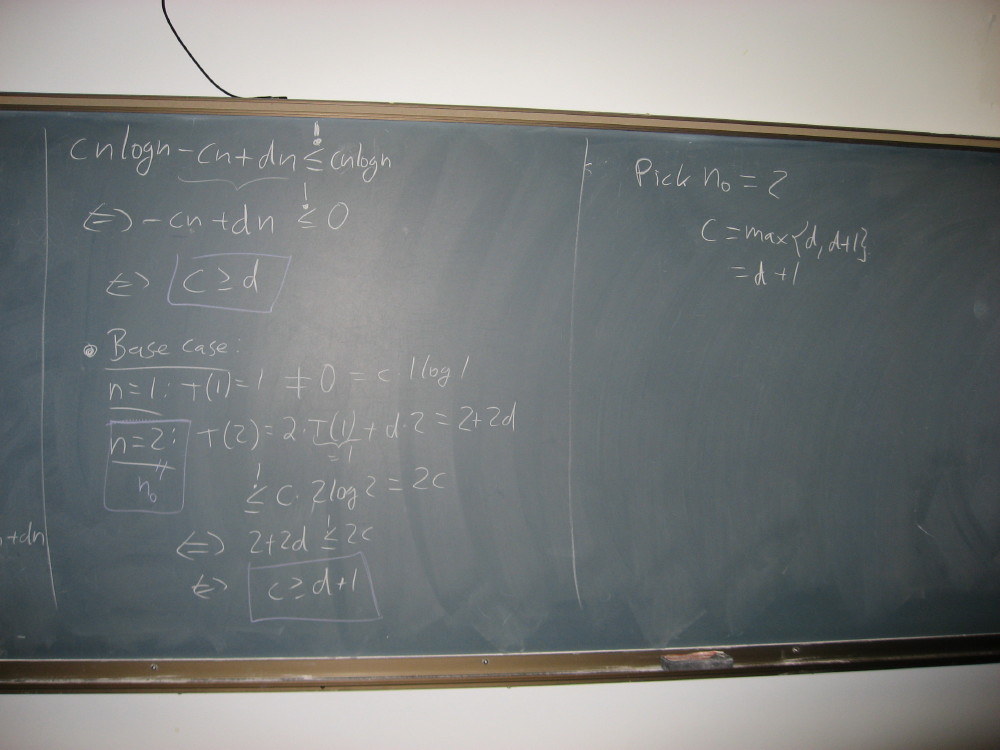 cnlogn - cn + dn ≤! cnlogn
⇔ - cn + dn ≤! 0
⇔ c ≥ d
• Base case:
n=1: T(1)=1 ≠ 0 = c · 1 log 1
n=2: T(2) = 2 · T(1) + d · 2 = 2+2d
= 1
n₀
≤! c · 2 log 2 = 2c
+dn
⇔ 2+2d ≤! 2c
⇔ c ≥ d+1
Pick n₀ = 2
C = max{d, d+1}
= d+1